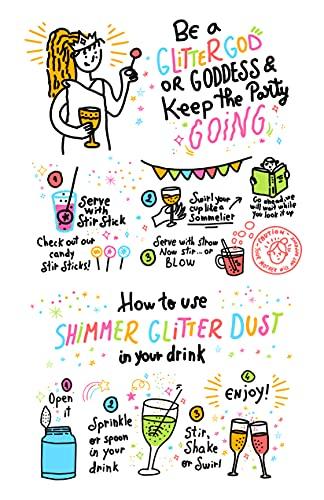 Be a
GLITTER GOD
OR GODDESS &
Keep the Party
GOING
1
Serve
with
Stir Stick
Check out our
candy
Stir Sticks!
2
Swirl your
cup like a
Sommelier
Go ahead, we
will wait while
you look it up
3
Serve with straw
Now Stir... or
BLOW
CAUTION
How to use
SHIMMER GLITTER DUST
in your drink
1
Open
it
2
Sprinkle
or spoon
in your
drink
3
Stir,
Shake
or Swirl
4
ENJOY!